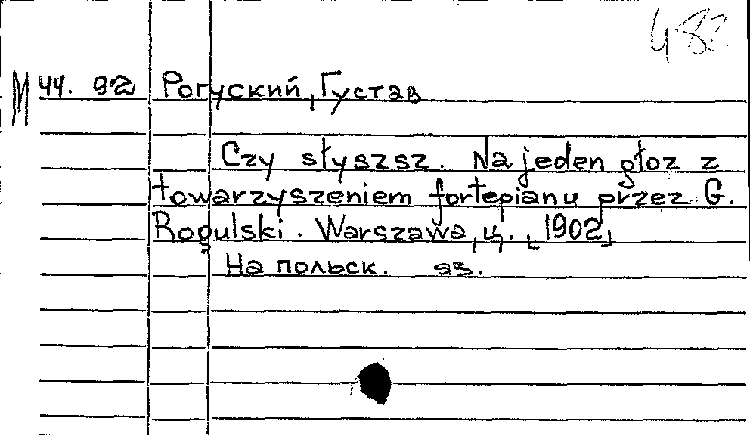 48
М 44. 92 Рогуский, Густав
Czy słyszsz. Na jeden głoz z
towarzyszeniem fortepianu przez G.
Rogulski. Warszawa, ц. [1902]
На польск. яз.